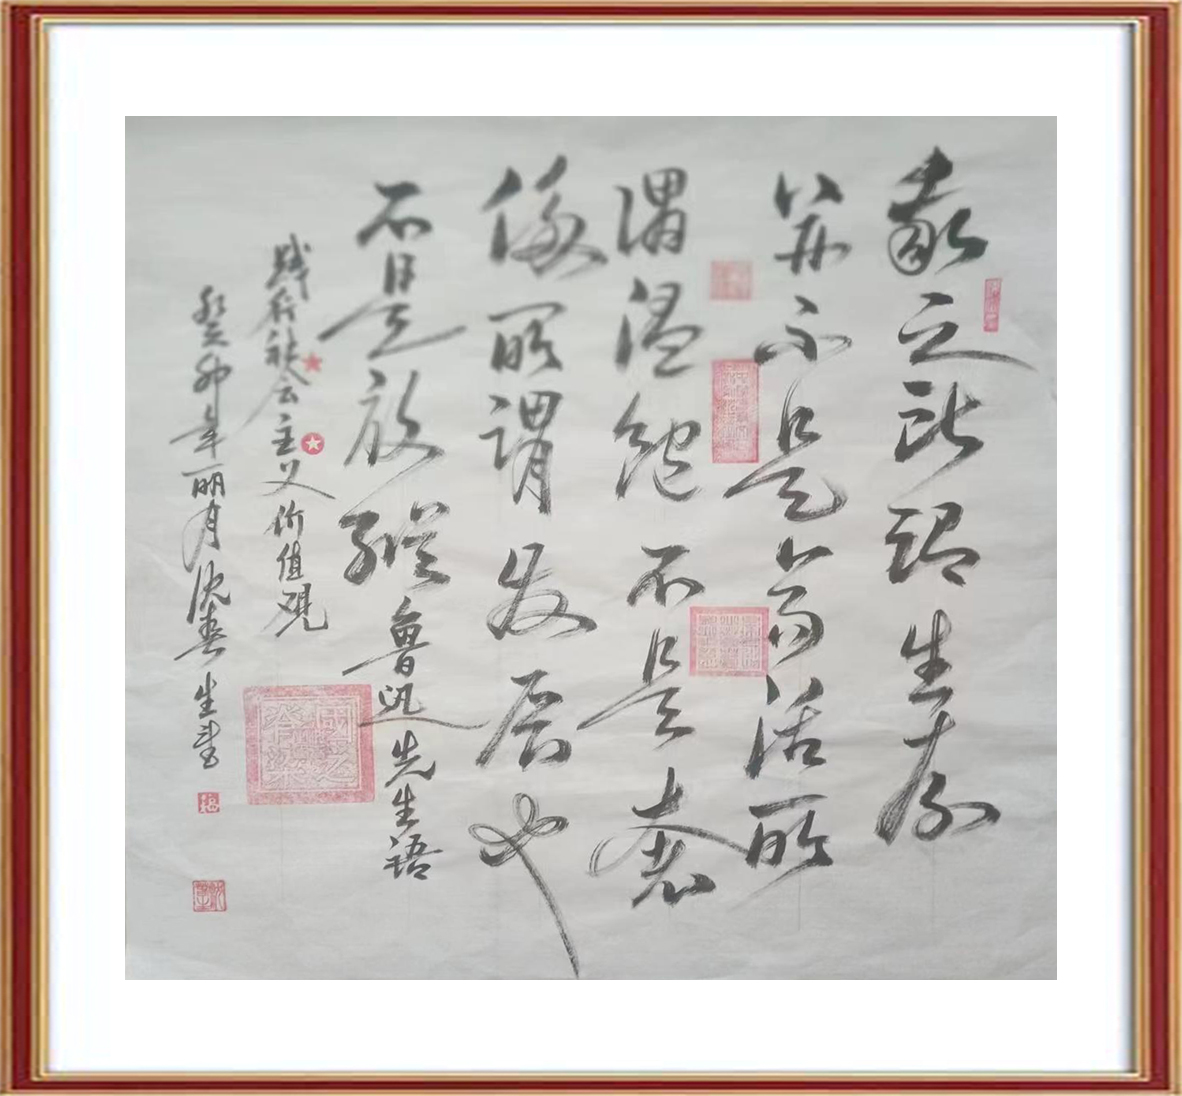 敢之所谓生存
并不是苟活所
谓温饱不是奢
侈所谓发展也
不是放纵鲁迅先生语
践行社会主义价值观
癸卯年丽月沈春生书